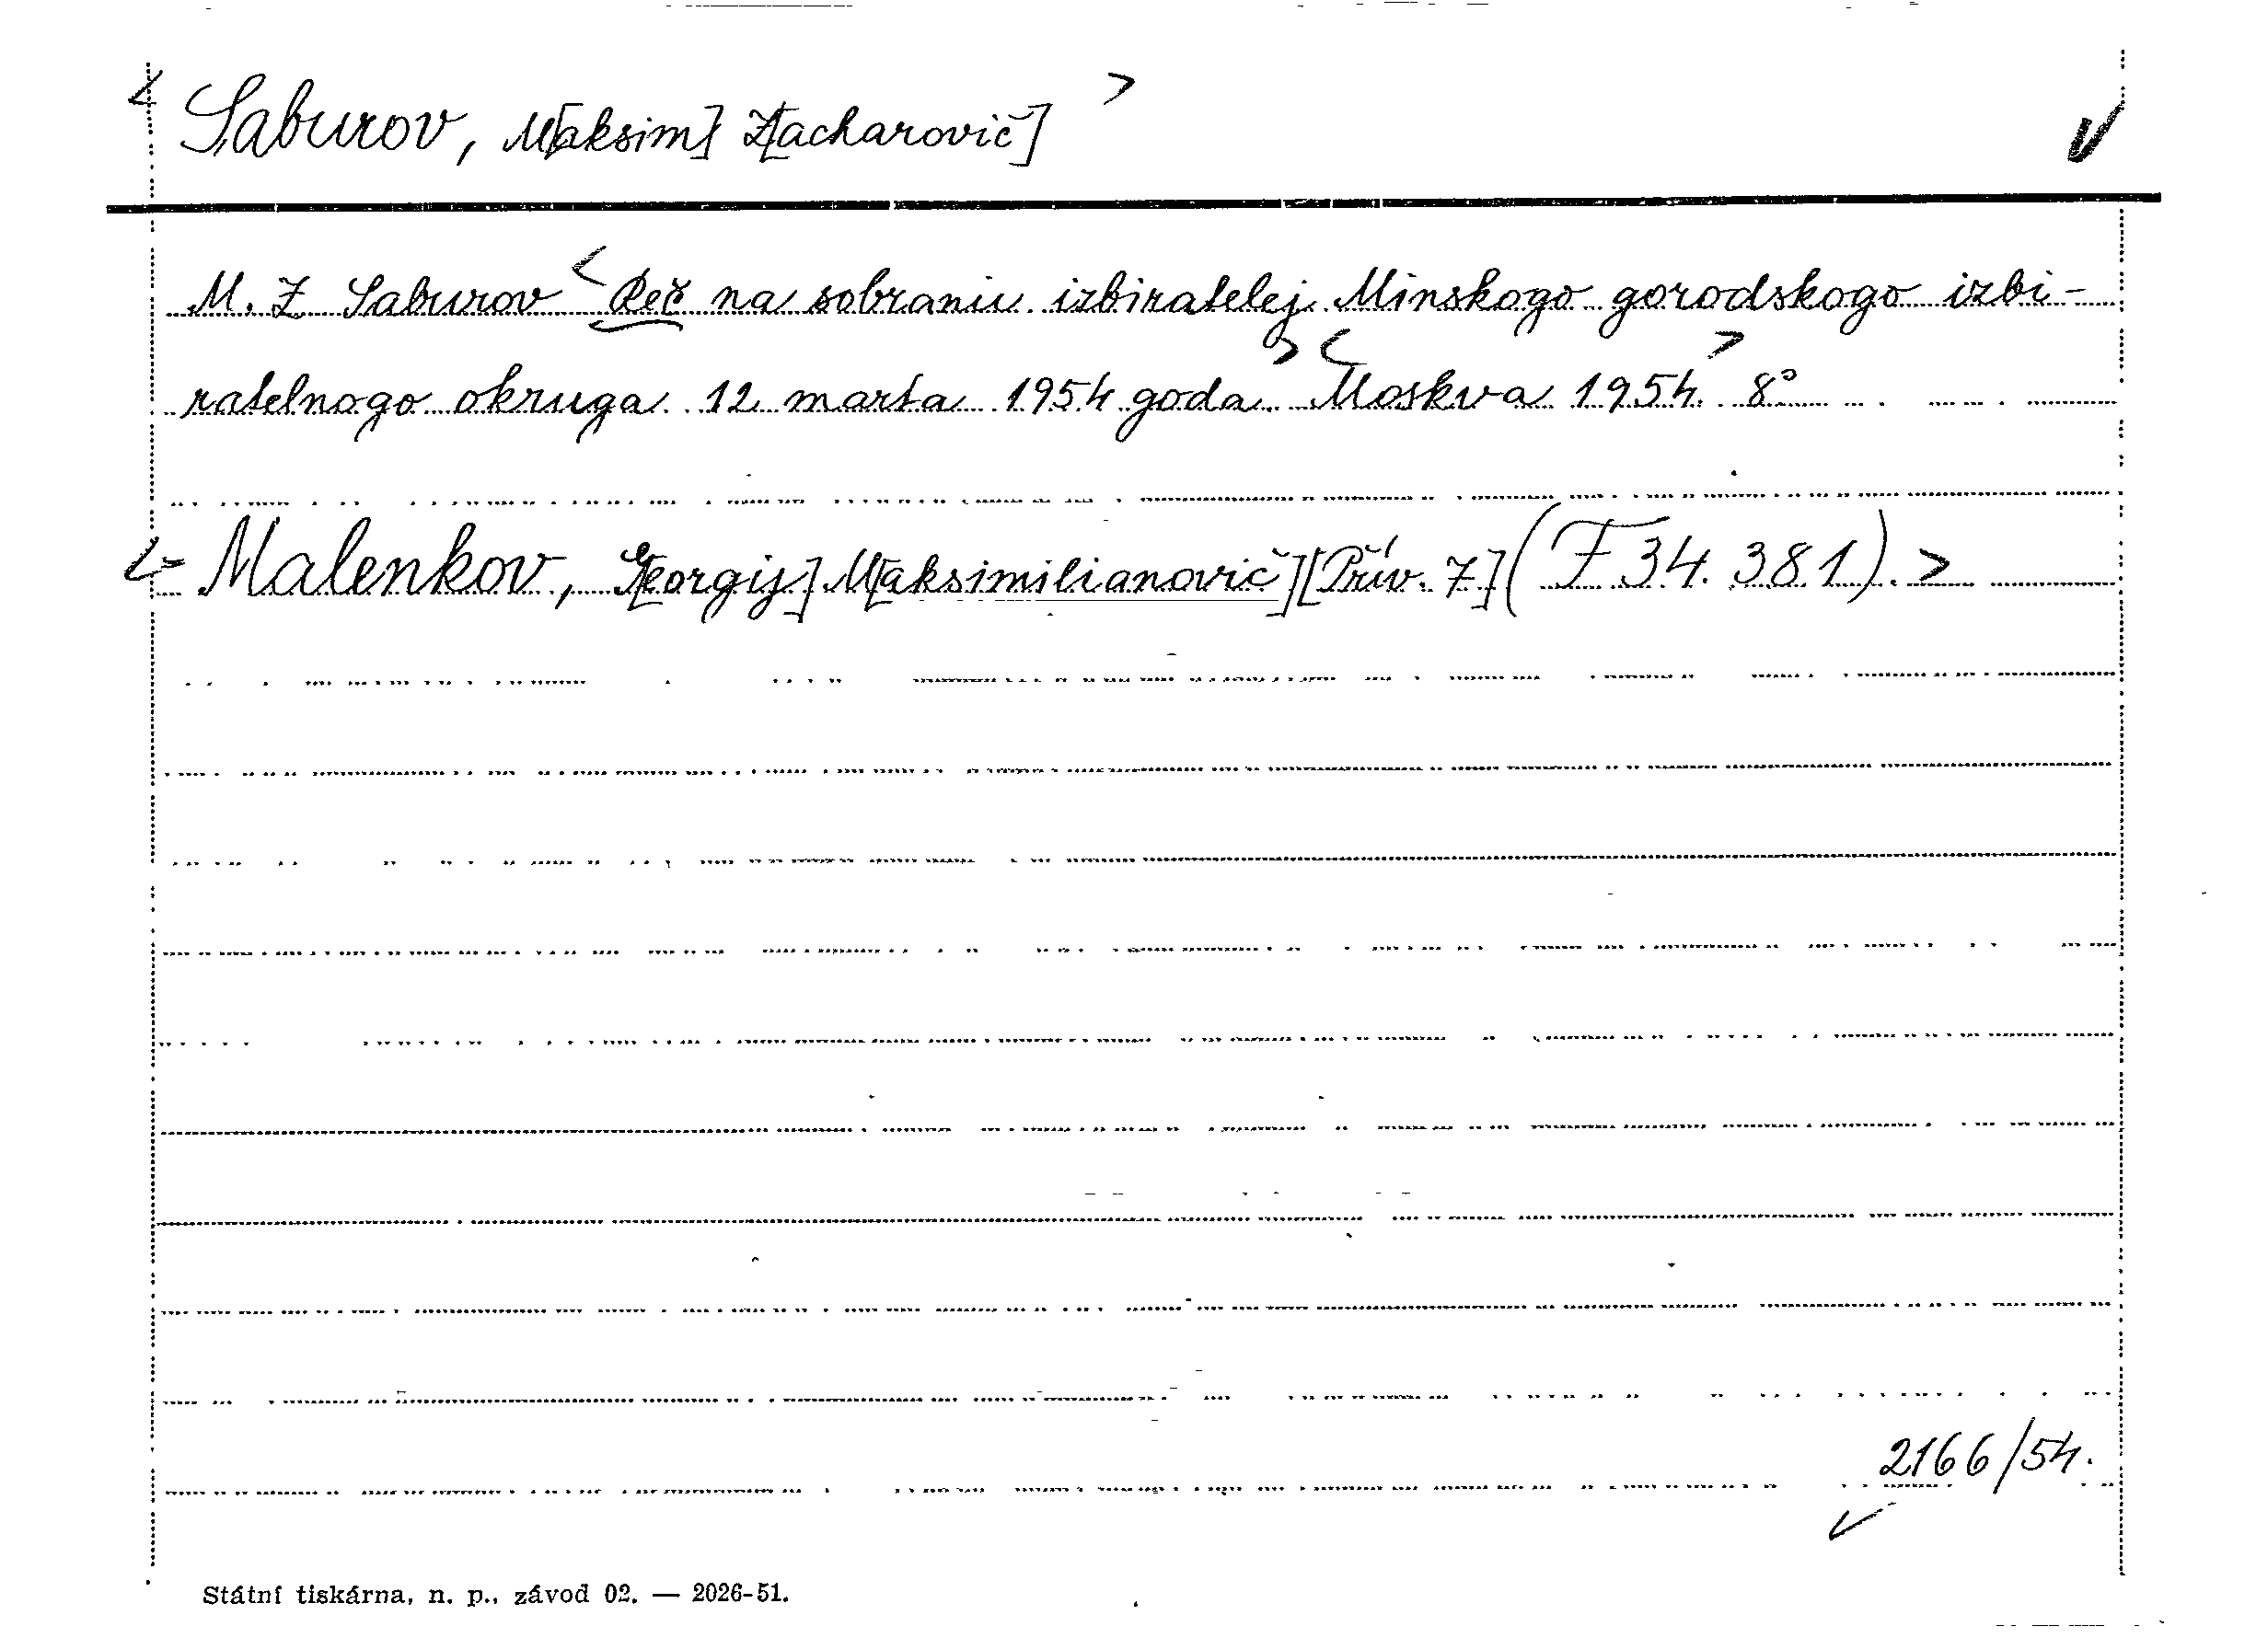 < Saburov, M[aksim] Z[acharovič] >
M. Z Saburov < Reč na sobranii izbiratelej Minskogo gorodskogo izbi-
ratelnogo okruga 12 marta 1954 goda. > < Moskva 1954. > 8°
<= Malenkov, G[eorgij] M[aksimilianovič] [Přív. 7] (F 34.381). >
2166/54.
Státní tiskárna, n. p., závod 02. — 2026-51.